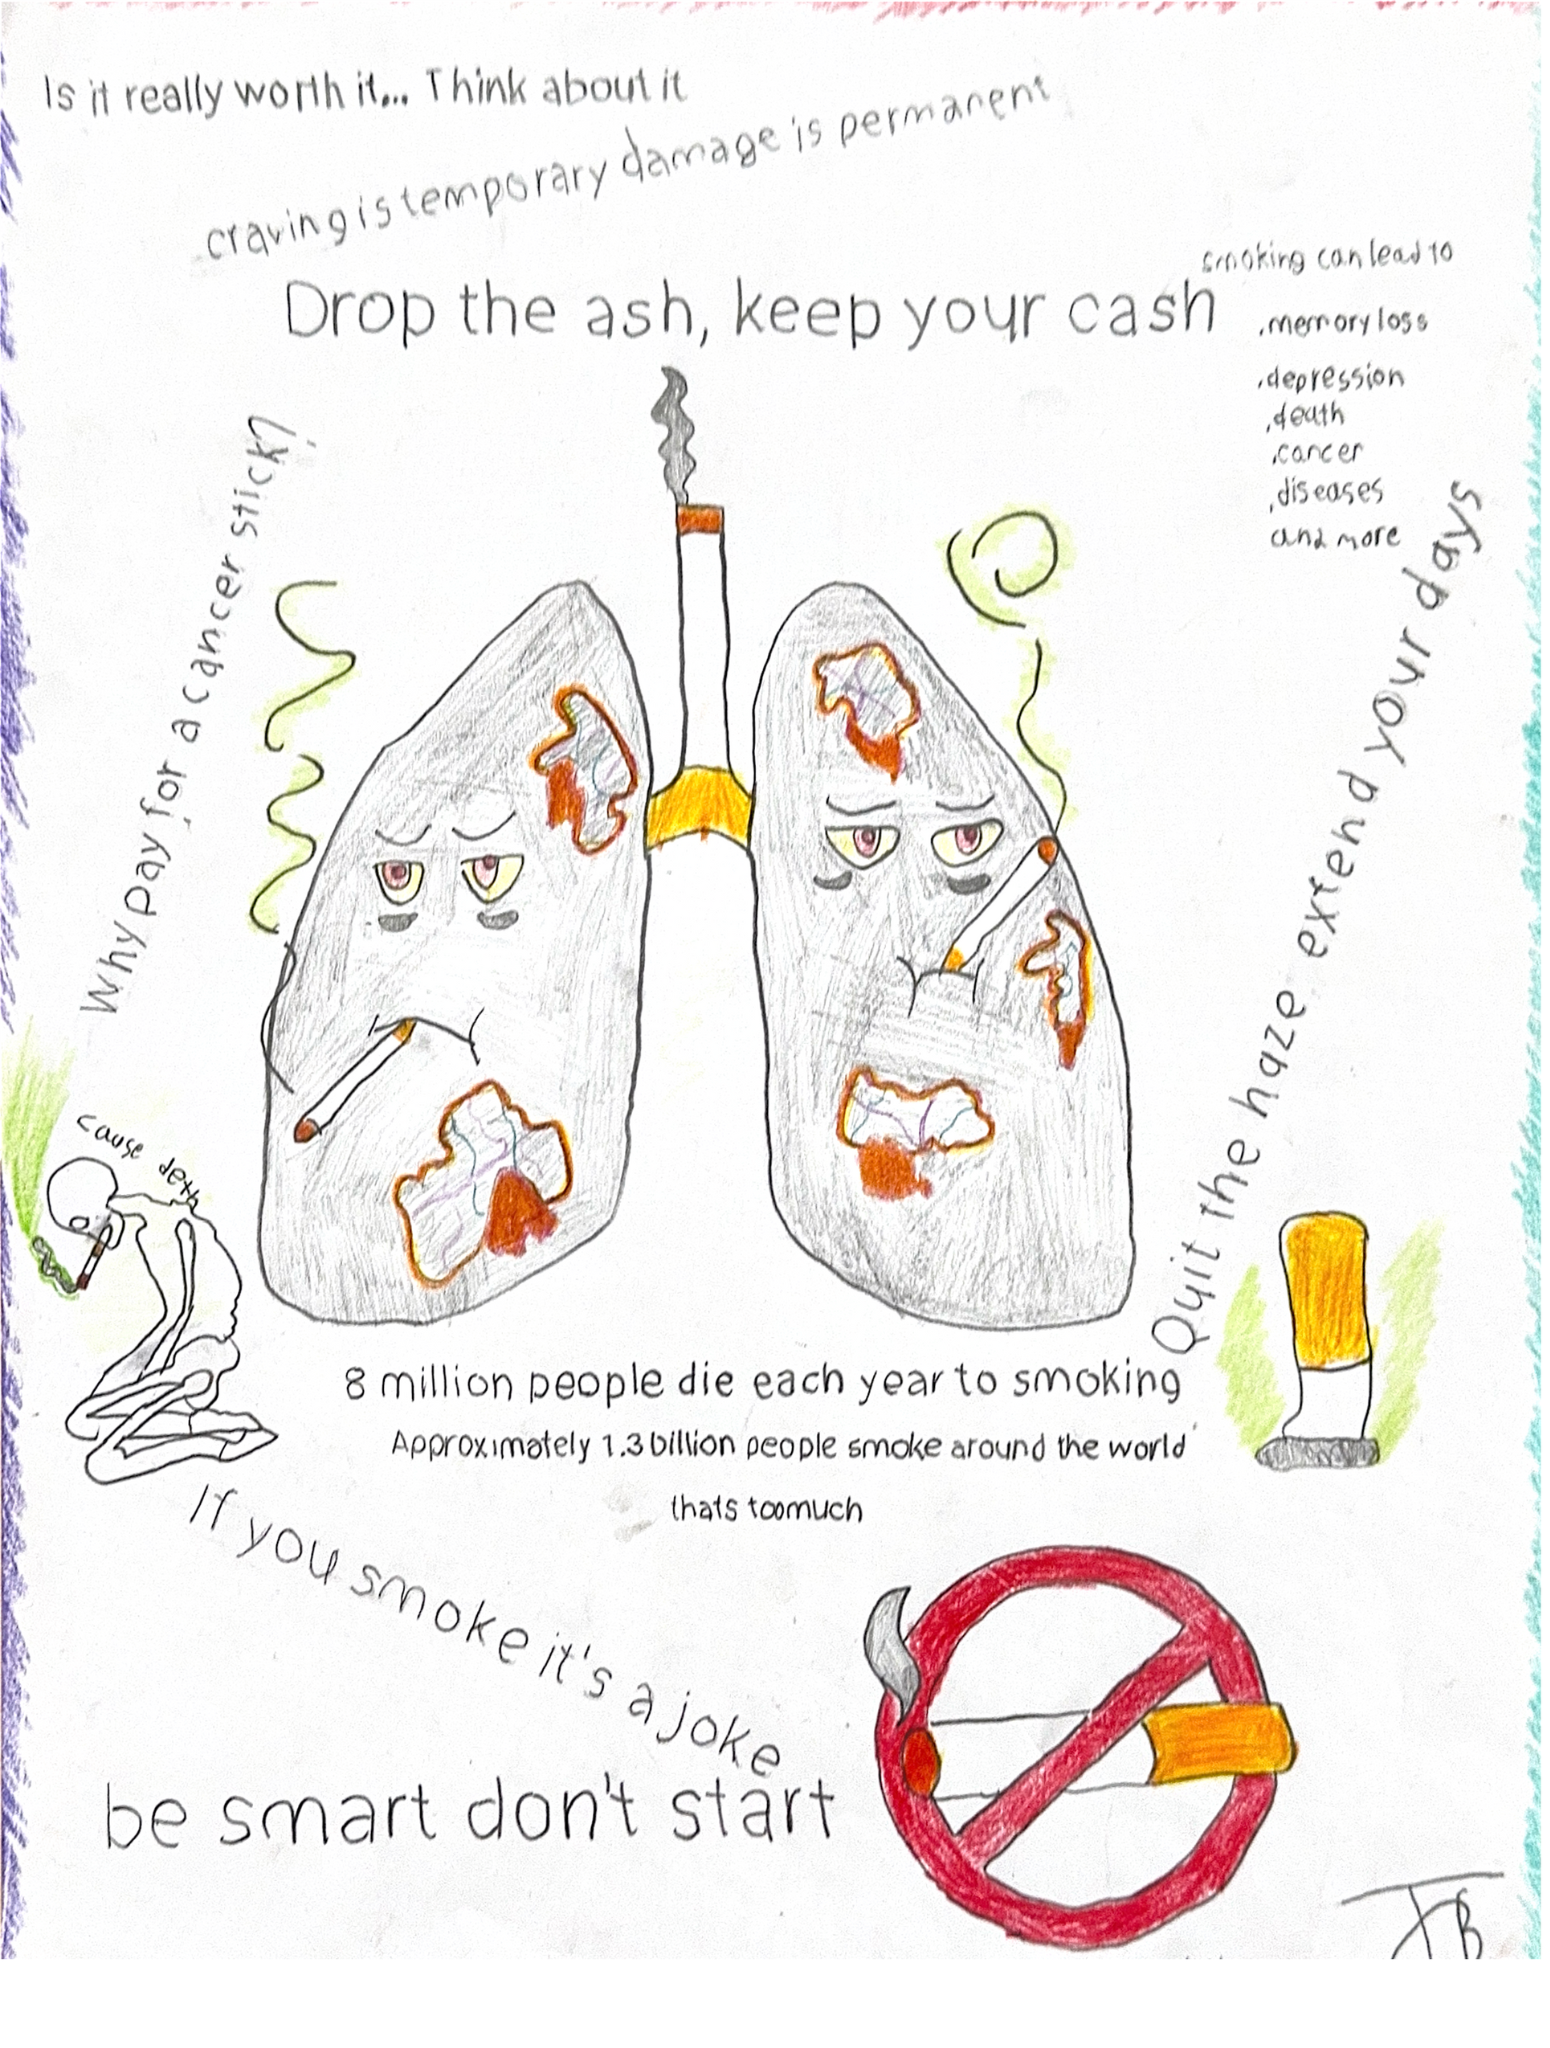 Is it really worth it... Think about it
craving is temporary damage is permanent
Drop the ash, keep your cash
smoking can lead to
.memory loss
.depression
.death
.cancer
.diseases
and more
Why pay for a cancer stick?
Quit the haze extend your days
cause deth
8 million people die each year to smoking
Approximately 1.3 billion people smoke around the world
thats too much
If you smoke it's a joke
be smart don't start